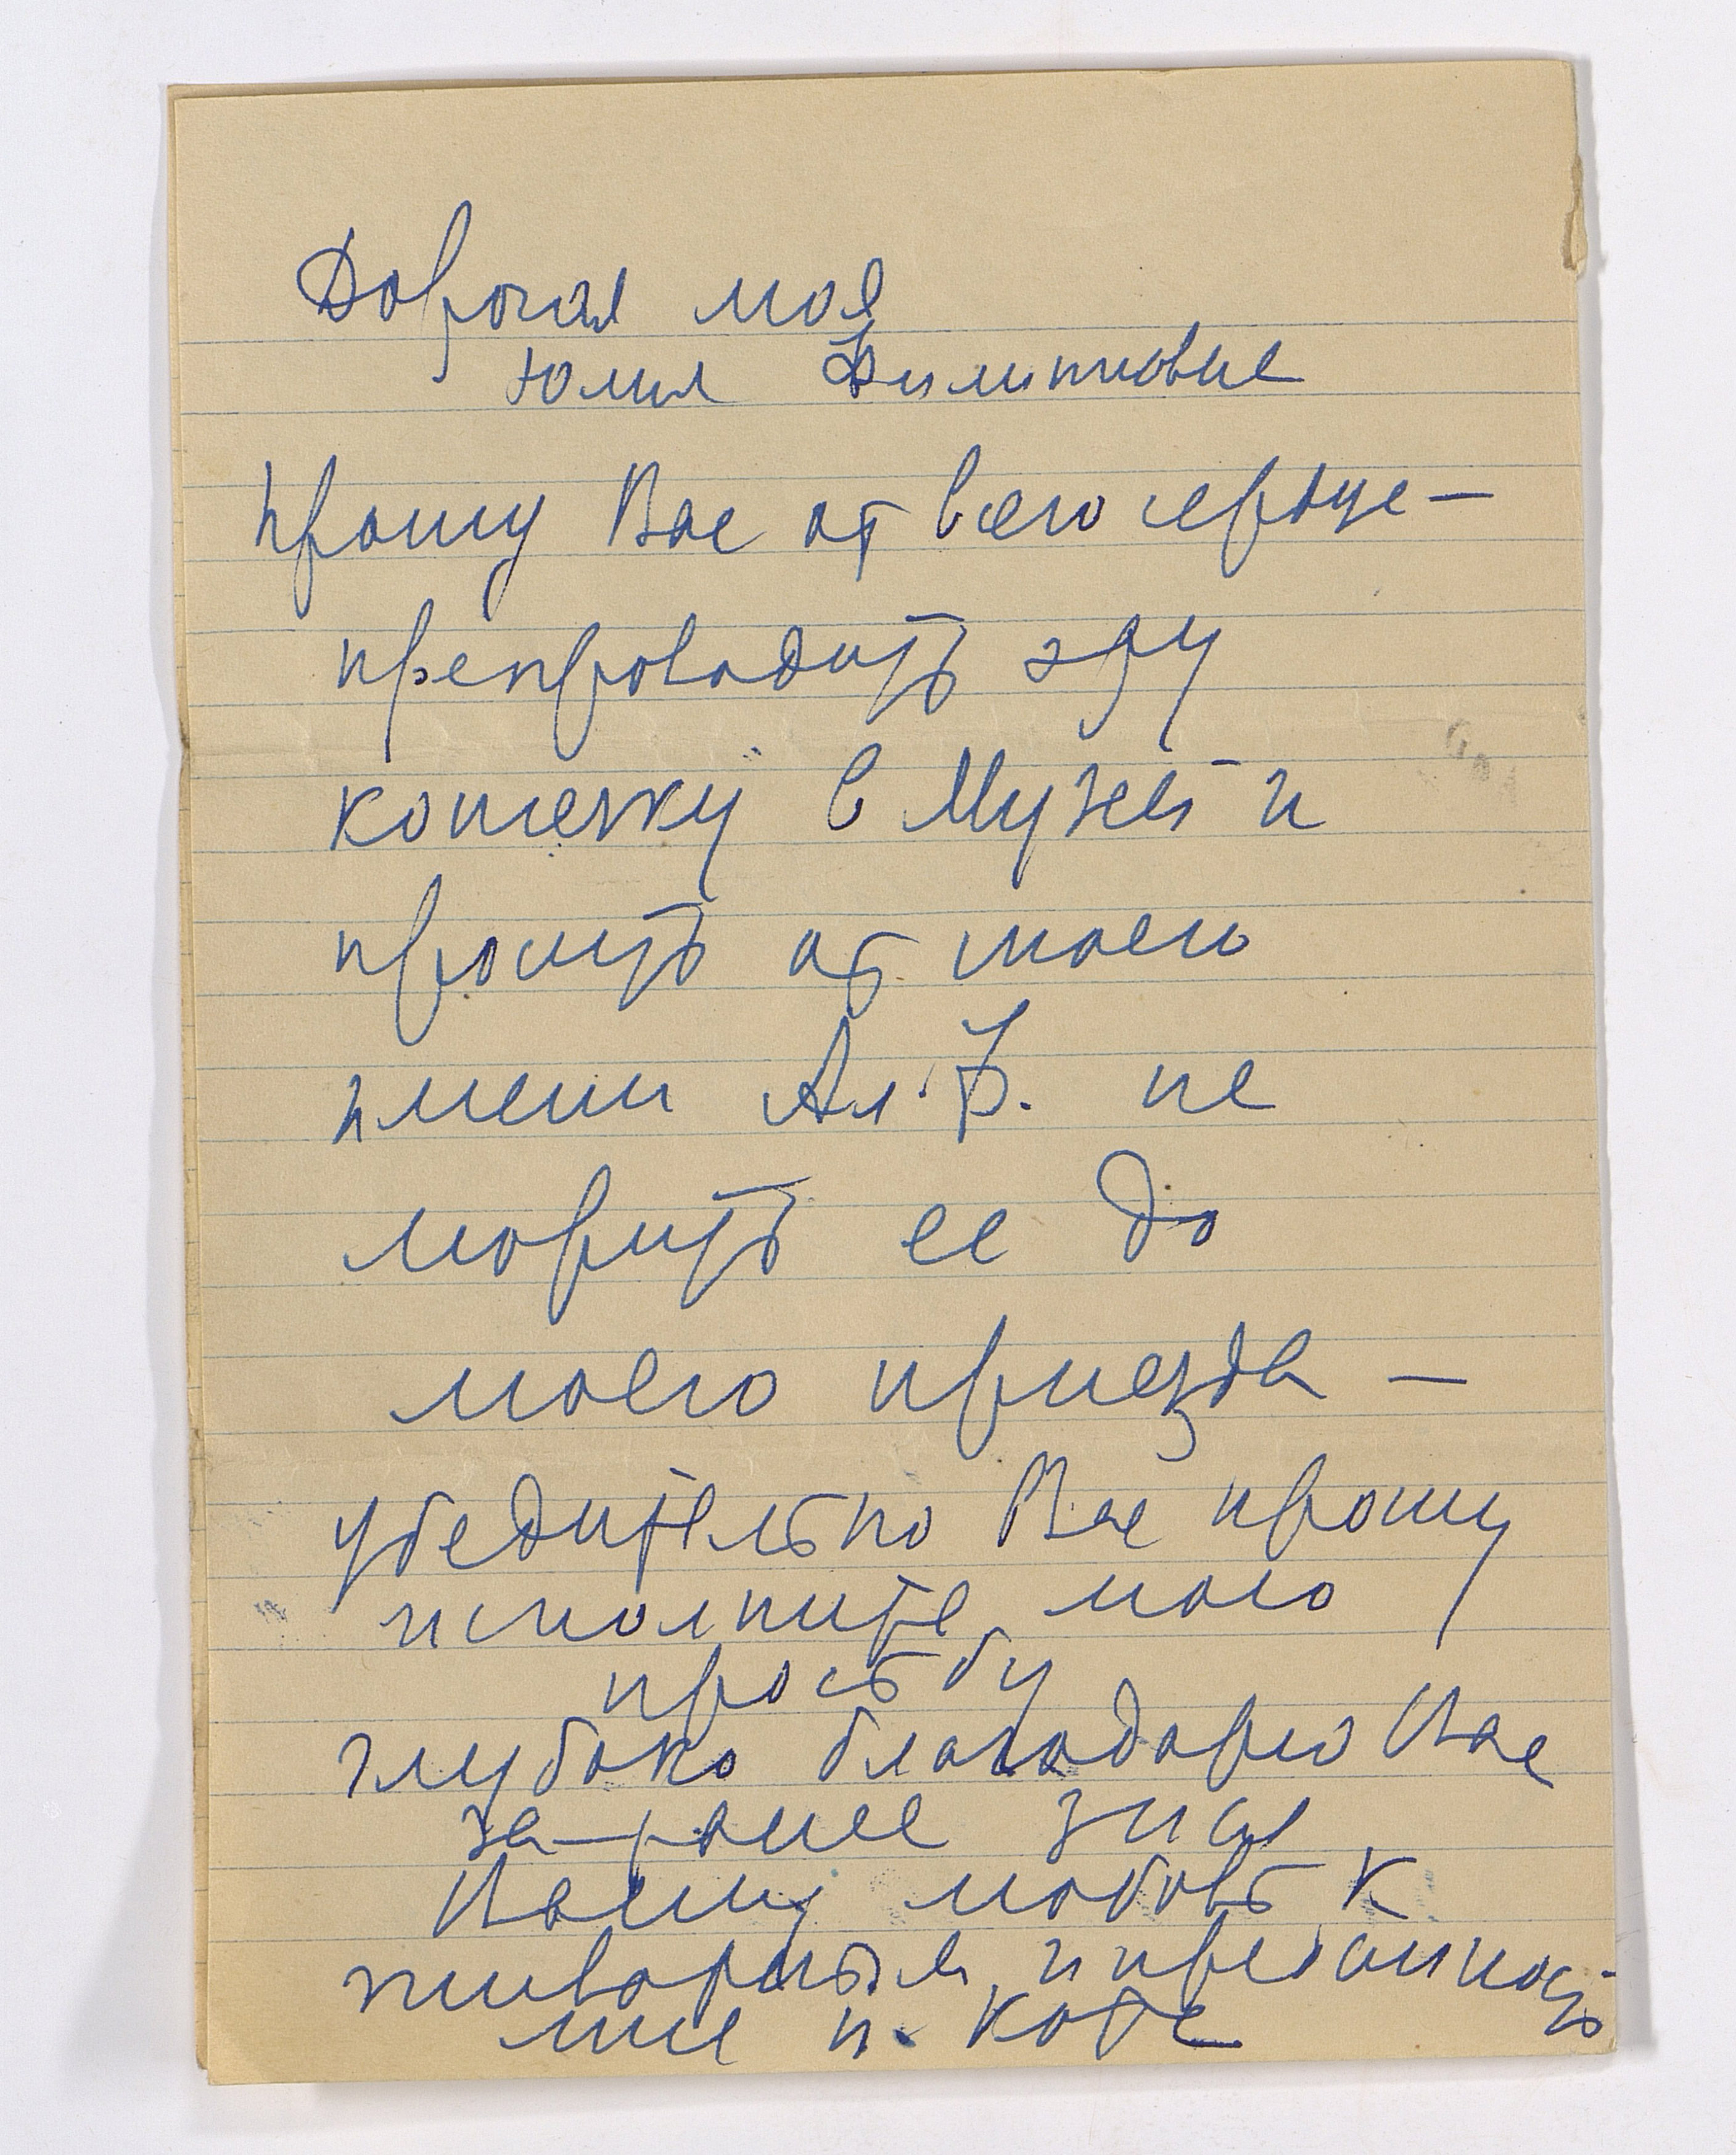 Дорогая моя
Юлия Филипповна
Прошу Вас от всего сердца —
препроводить эту
кошечку в Музей и
просить от моего
имени Ал. Ф. не
морить ее до
моего приезда —
убедительно Вас прошу
исполнить мою
просьбу
глубоко благодарю Вас
за-ранее зная
Вашу любовь к
животным и преданность
мне и Коте